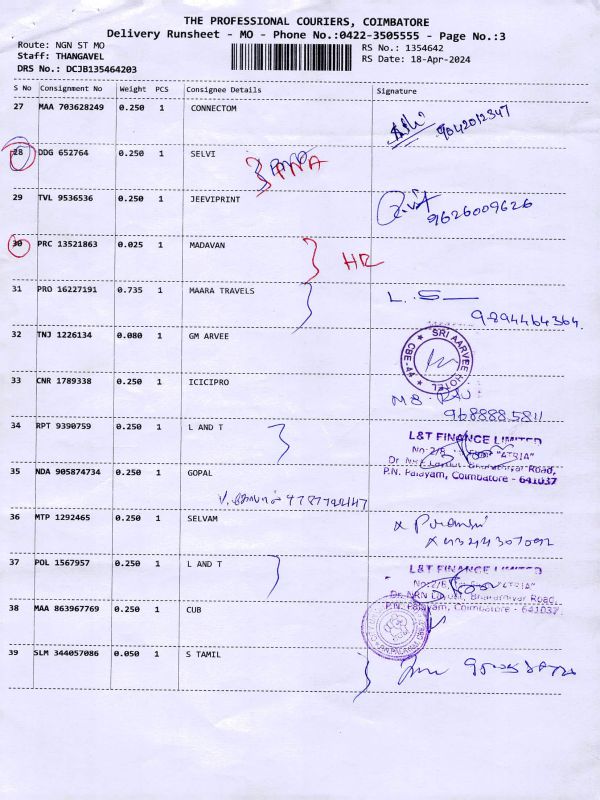 THE PROFESSIONAL COURIERS, COIMBATORE
Delivery Runsheet - MO - Phone No.:0422-3505555 - Page No.:3
Route: NGN ST MO
RS No.: 1354642
Staff: THANGAVEL
RS Date: 18-Apr-2024
DRS No.: DCJB135464203
S No Consignment No Weight PCS Consignee Details Signature
27 MAA 703628249 0.250 1 CONNECTOM
9042012347
28 DDG 652764 0.250 1 SELVI
29 TVL 9536536 0.250 1 JEEVIPRINT
9626009626
30 PRC 13521863 0.025 1 MADAVAN
31 PRO 16227191 0.735 1 MAARA TRAVELS
L. S
9894464364.
32 TNJ 1226134 0.080 1 GM ARVEE
SRI AARVEE HOTEL
CBE-44
33 CNR 1789338 0.250 1 ICICIPRO
968888 5811
34 RPT 9390759 0.250 1 L AND T
L&T FINANCE LIMITED
No:2/6 "ATRIA"
Dr. NRN Layout, Bharathiyar Road,
P.N. Palayam, Coimbatore - 641037
35 NDA 905874734 0.250 1 GOPAL
36 MTP 1292465 0.250 1 SELVAM
37 POL 1567957 0.250 1 L AND T
L&T FINANCE LIMITED
No:2/6 "ATRIA"
Dr. NRN Layout, Bharathiyar Road,
P.N. Palayam, Coimbatore - 641037
38 MAA 863967769 0.250 1 CUB
39 SLM 344057086 0.050 1 S TAMIL